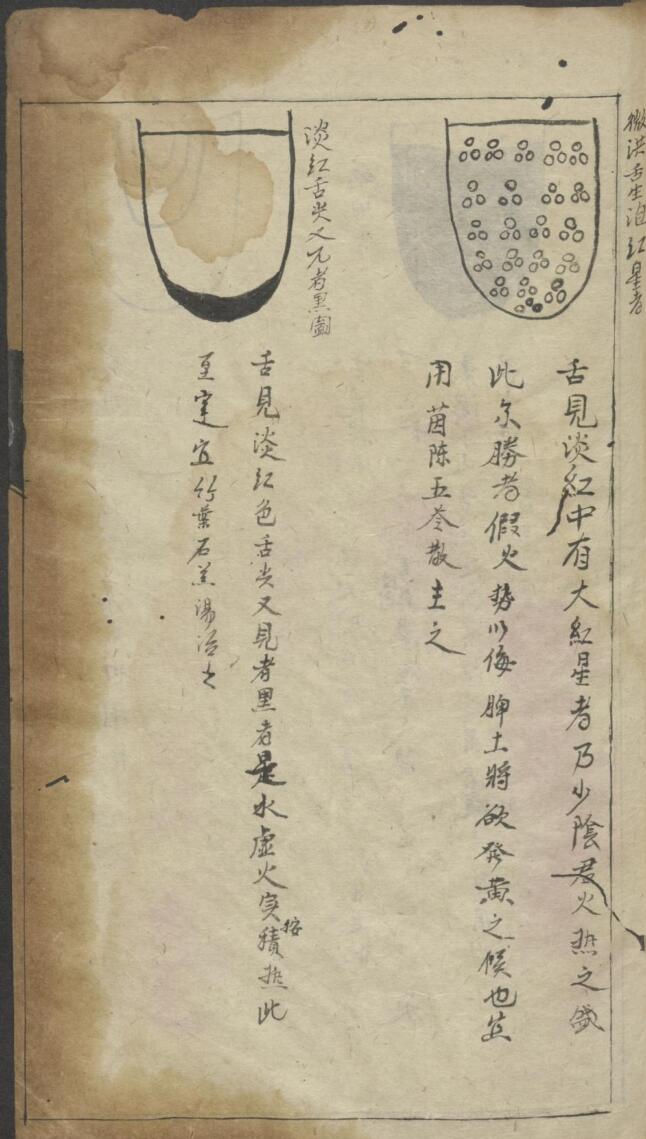 微洪舌生泡紅星者
舌見淡紅中有大紅星者乃少陰君火热之盛
此京勝者假火勢以侮脾土將欲發黄之候也宜
用茵陈五苓散主之
淡红舌尖又兀者黑圖
舌見淡红色舌尖又見者黑者是水虛火实積热此
按
至宜竹葉石羔湯治之